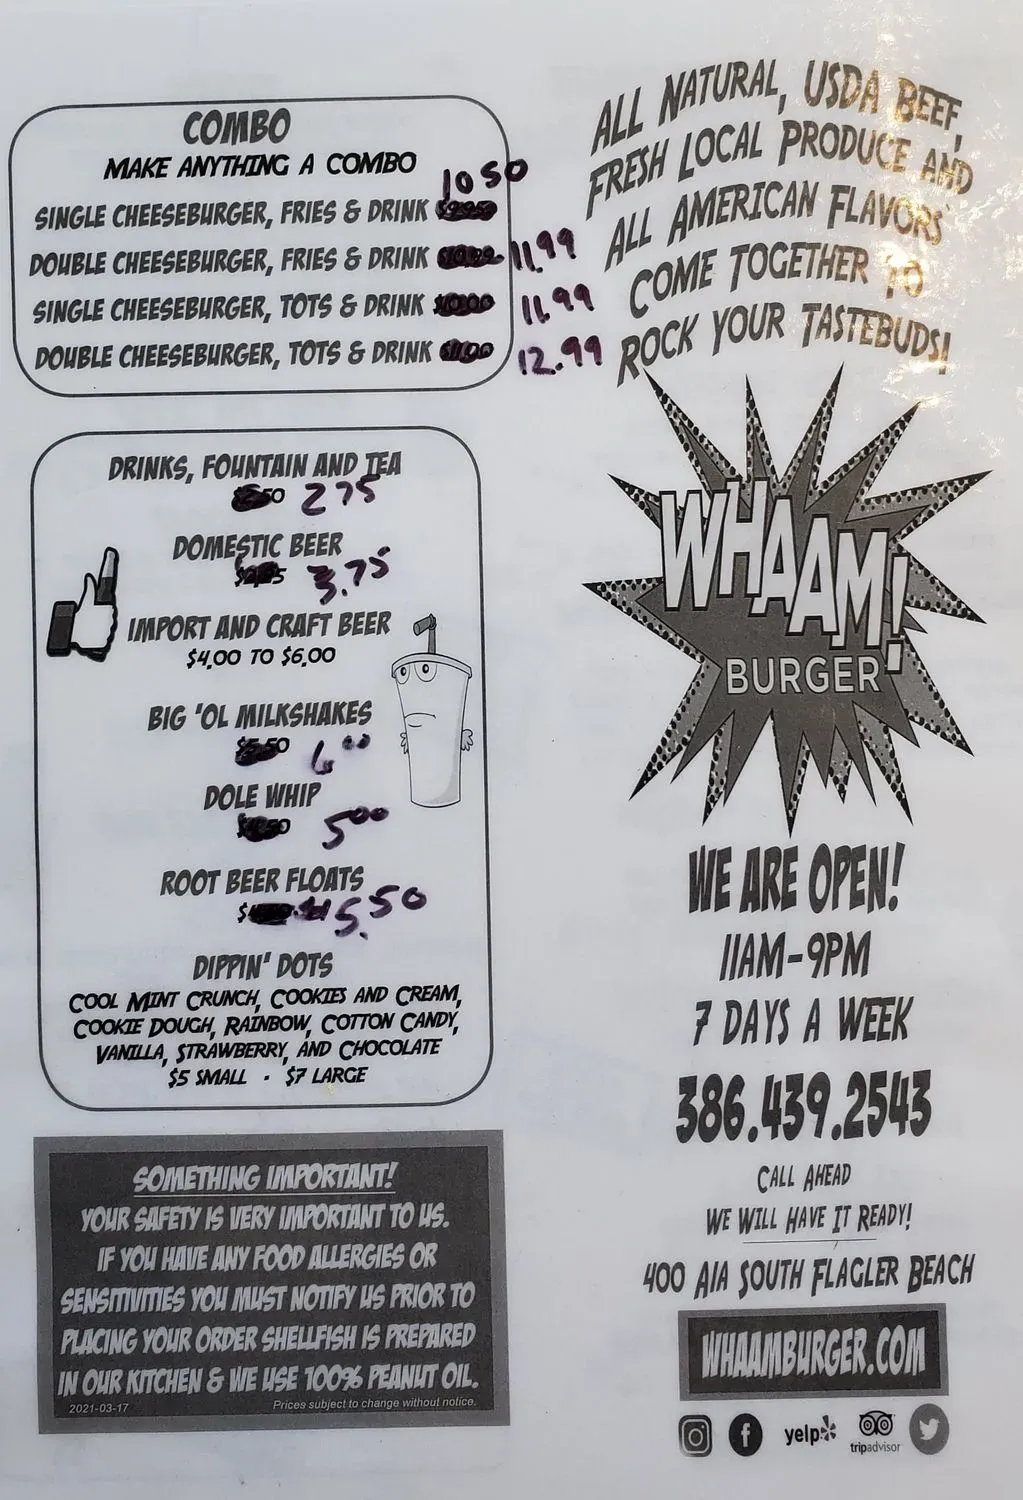 COMBO
MAKE ANYTHING A COMBO
SINGLE CHEESEBURGER, FRIES & DRINK 10 50
DOUBLE CHEESEBURGER, FRIES & DRINK 11.99
SINGLE CHEESEBURGER, TOTS & DRINK 11.99
DOUBLE CHEESEBURGER, TOTS & DRINK 12.99
DRINKS, FOUNTAIN AND TEA
2 75
DOMESTIC BEER
3.75
IMPORT AND CRAFT BEER
$4.00 TO $6.00
BIG 'OL MILKSHAKES
6 00
DOLE WHIP
5 00
ROOT BEER FLOATS
5.50
DIPPIN' DOTS
COOL MINT CRUNCH, COOKIES AND CREAM,
COOKIE DOUGH, RAINBOW, COTTON CANDY,
VANILLA, STRAWBERRY, AND CHOCOLATE
$5 SMALL - $7 LARGE
SOMETHING IMPORTANT!
YOUR SAFETY IS VERY IMPORTANT TO US.
IF YOU HAVE ANY FOOD ALLERGIES OR
SENSITIVITIES YOU MUST NOTIFY US PRIOR TO
PLACING YOUR ORDER SHELLFISH IS PREPARED
IN OUR KITCHEN & WE USE 100% PEANUT OIL.
2021-03-17 Prices subject to change without notice.
ALL NATURAL, USDA BEEF,
FRESH LOCAL PRODUCE AND
ALL AMERICAN FLAVORS
COME TOGETHER TO
ROCK YOUR TASTEBUDS!
WHAAM!
BURGER
WE ARE OPEN!
11AM-9PM
7 DAYS A WEEK
386.439.2543
CALL AHEAD
WE WILL HAVE IT READY!
400 A1A SOUTH FLAGLER BEACH
WHAAMBURGER.COM
yelp
tripadvisor